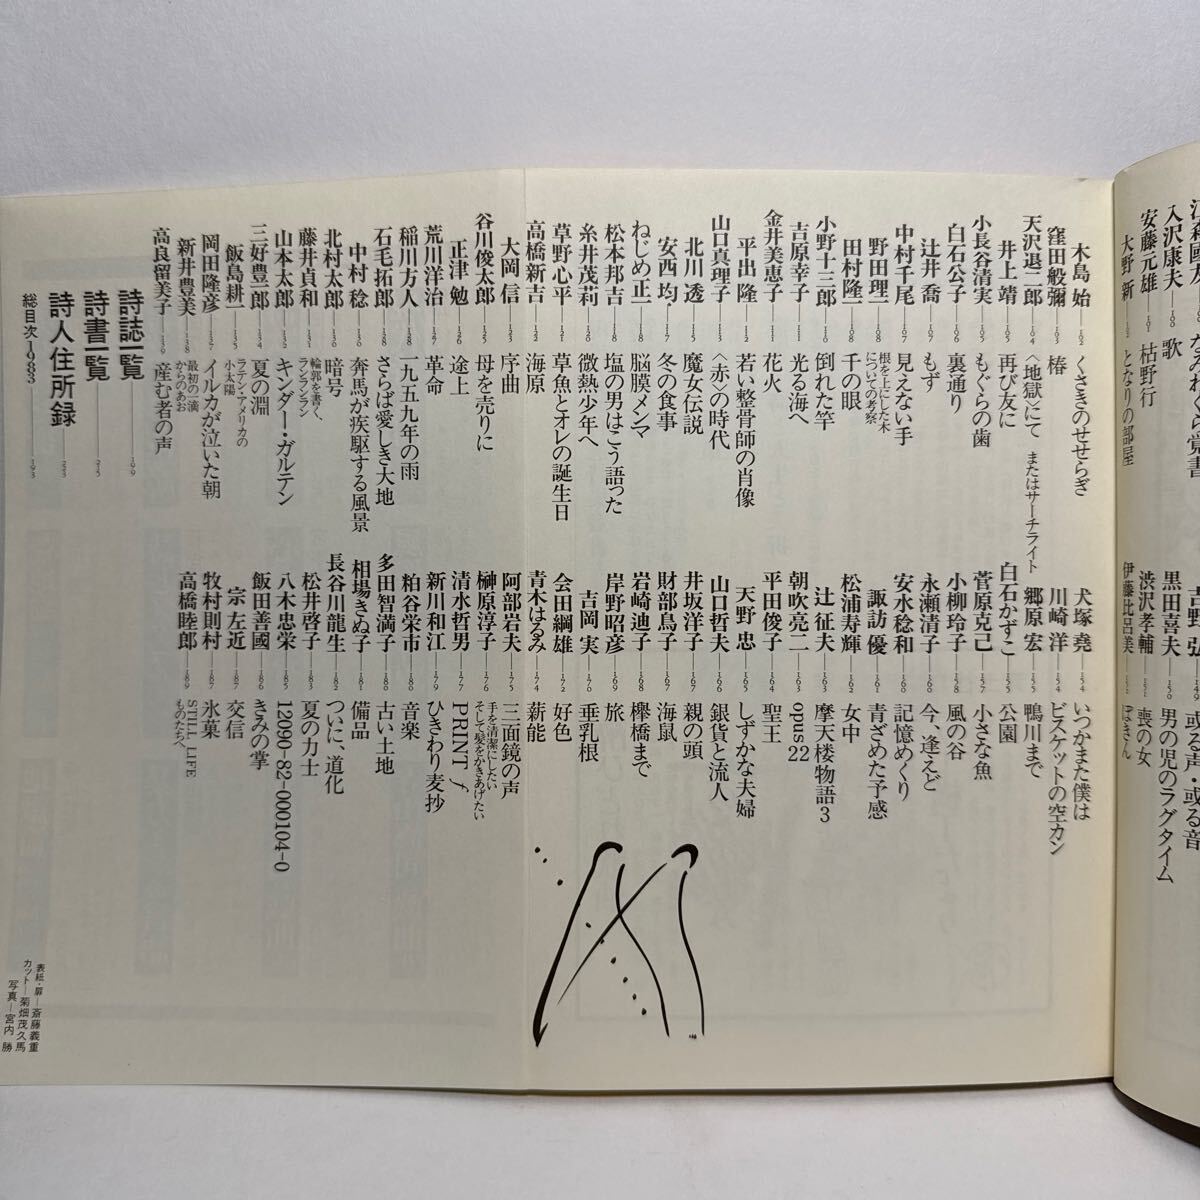 入沢康夫 100 歌
安藤元雄 101 枯野行
大野 新 となりの部屋
黒田喜夫 150 男の児のラグタイム
渋沢孝輔 151 喪の女
伊藤比呂美 152
木島 始 102 くさきのせせらぎ
窪田般彌 103 椿
天沢退二郎 104 〈地獄〉にて またはサーチライト
井上 靖 105 再び友に
小長谷清実 105 もぐらの歯
白石公子 106 裏通り
辻井 喬 106 もず
中村千尾 107 見えない手
野田理一 108 根を上にした木についての考察
田村隆一 108 千の眼
小野十三郎 110 倒れた竿
吉原幸子 111 光る海へ
金井美恵子 111 花火
平出 隆 112 若い整骨師の肖像
山口真理子 113 〈赤〉の時代
北川 透 115 魔女伝説
安西 均 117 冬の食事
ねじめ正一 118 脳膜メンマ
松本邦吉 118 塩の男はこう語った
糸井茂莉 120 微熱少年へ
草野心平 121 草魚とオレの誕生日
高橋新吉 122 海原
大岡 信 123 序曲
谷川俊太郎 125 母を売りに
正津 勉 126 途上
荒川洋治 127 革命
稲川方人 128 一九五九年の雨
石毛拓郎 128 さらば愛しき大地
中村 稔 130 奔馬が疾駆する風景
北村太郎 130 暗号
藤井貞和 131 輪郭を書く ランランラン
山本太郎 132 キンダー・ガルテン
三好豊一郎 134 夏の淵
飯島耕一 135 ラテン・アメリカの小太陽
岡田隆彦 137 イルカが泣いた朝
新井豊美 138 最初の一滴からのあお
高良留美子 139 産む者の声
犬塚 堯 154 いつかまた僕は
川崎 洋 154 ビスケットの空カン
郷原 宏 155 鴨川まで
白石かずこ 155 公園
菅原克己 157 小さな魚
小柳玲子 158 風の谷
永瀬清子 160 今、逢えど
安水稔和 160 記憶めくり
諏訪 優 161 青ざめた予感
松浦寿輝 162 女中
辻 征夫 163 摩天楼物語3
朝吹亮二 163 opus22
平田俊子 164 聖王
天野 忠 165 しずかな夫婦
山口哲夫 166 銀貨と流人
井坂洋子 167 親の頭
財部鳥子 167 海鼠
岩崎迪子 168 欅橋まで
岸野昭彦 169 旅
吉岡 実 170 垂乳根
会田綱雄 172 好色
青木はるみ 174 薪能
阿部岩夫 175 三面鏡の声
榊原淳子 176 手を清潔にしたい そして髪をかきあげたい
清水哲男 177 PRINT f
新川和江 179 ひきわり麦抄
粕谷栄市 180 音楽
多田智満子 180 古い土地
相場きぬ子 181 備品
長谷川龍生 182 ついに、道化
松井啓子 183 夏の力士
八木忠栄 185 12090-82-000104-0
飯田善國 186 きみの掌
宗 左近 187 交信
牧村則村 187 氷菓
高橋睦郎 189 STILL LIFE ものたちへ
詩誌一覧 199
詩書一覧 215
詩人住所録 233
総目次1983 193
表紙・扉―斎藤義重
カット―菊畑茂久馬
写真―宮内 勝